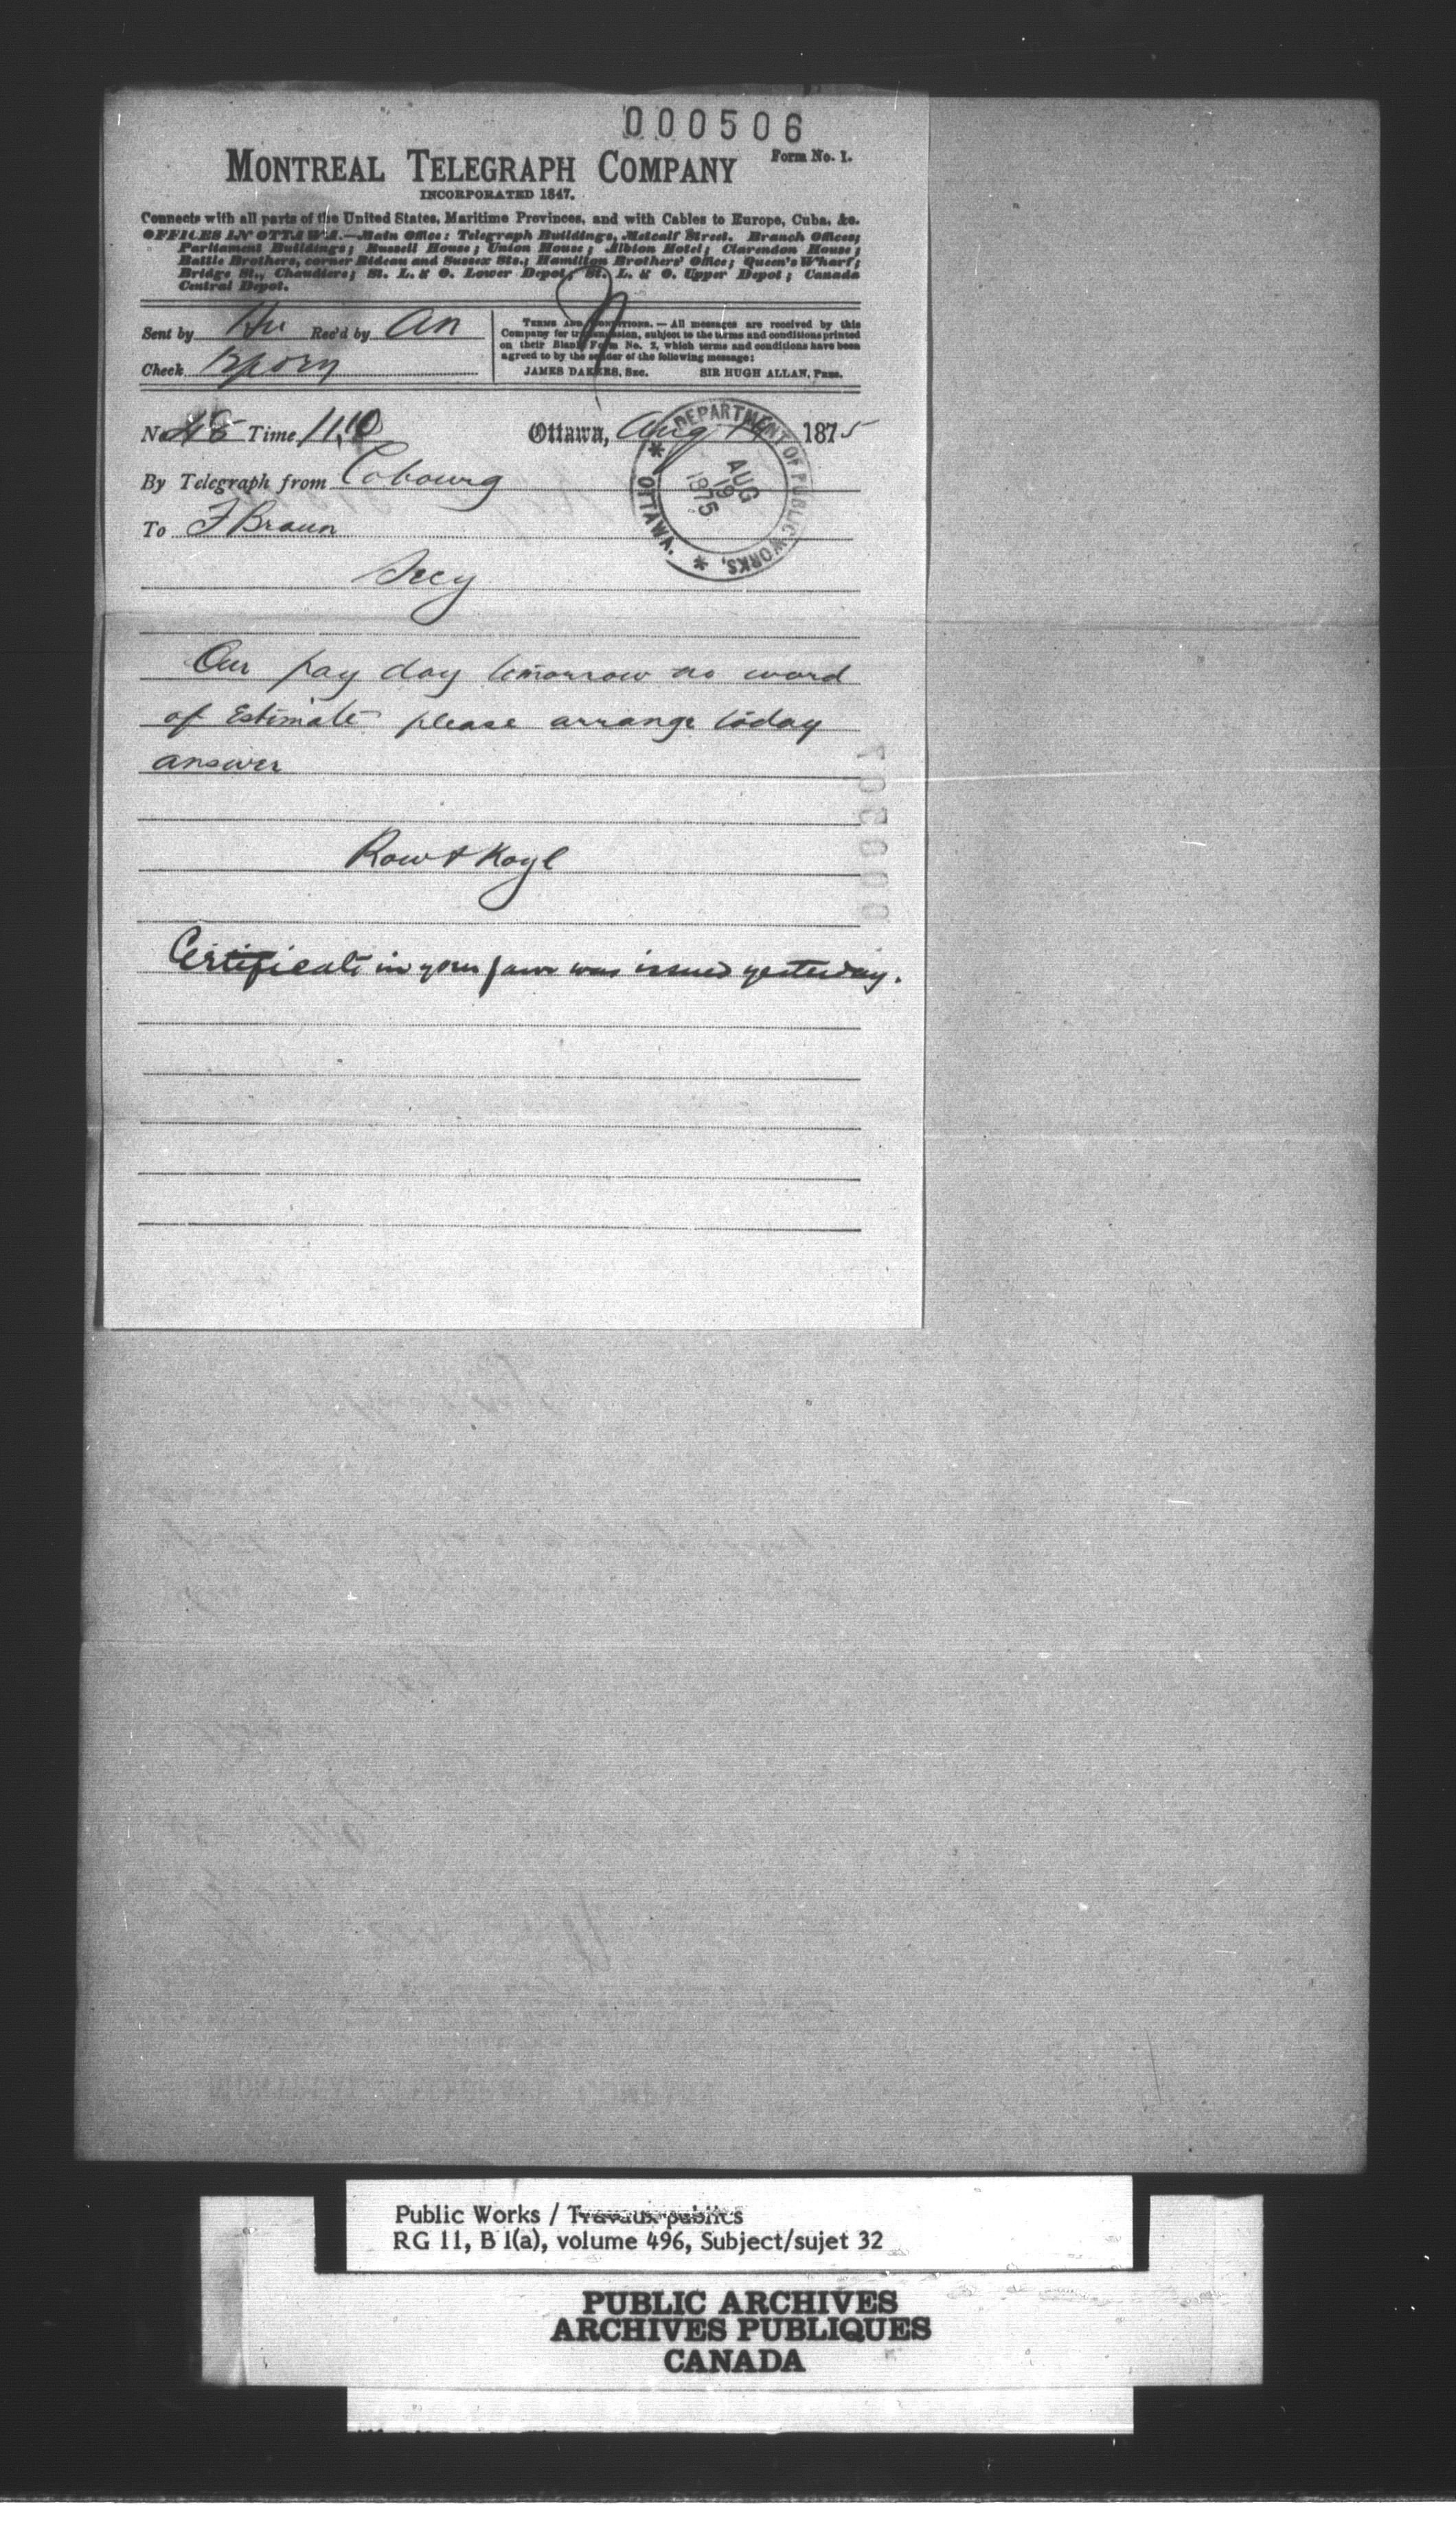 000506
Form No. 1.
MONTREAL TELEGRAPH COMPANY
INCORPORATED 1847.
Connects with all parts of the United States, Maritime Provinces, and with Cables to Europe, Cuba, &c.
OFFICES IN OTTAWA.—Main Office: Telegraph Buildings, Metcalf Street. Branch Offices;
Parliament Buildings; Russell House; Union House; Albion Hotel; Clarendon House;
Battle Brothers, corner Rideau and Sussex Sts.; Hamilton Brothers' Office; Queen's Wharf;
Bridge St., Chaudiere; St. L. & O. Lower Depot; St. L. & O. Upper Depot; Canada
Central Depot.
Sent by Hu Rec'd by An
Check
TERMS AND CONDITIONS. — All messages are received by this
Company for transmission, subject to the terms and conditions printed
on their Blank Form No. 2, which terms and conditions have been
agreed to by the sender of the following message:
JAMES DAKERS, Sec. SIR HUGH ALLAN, Pres.
No Time 11.10 Ottawa, Aug 19 1875
DEPARTMENT OF PUBLIC WORKS, * OTTAWA. *
AUG
19
1875
By Telegraph from Cobourg
To F Braun
Secy
Our pay day tomorrow no word
of Estimate please arrange today
answer
Row & Kayl
Certificate in your favr was issued yesterday.
Public Works / Travaux publics
RG 11, B 1(a), volume 496, Subject/sujet 32
PUBLIC ARCHIVES
ARCHIVES PUBLIQUES
CANADA